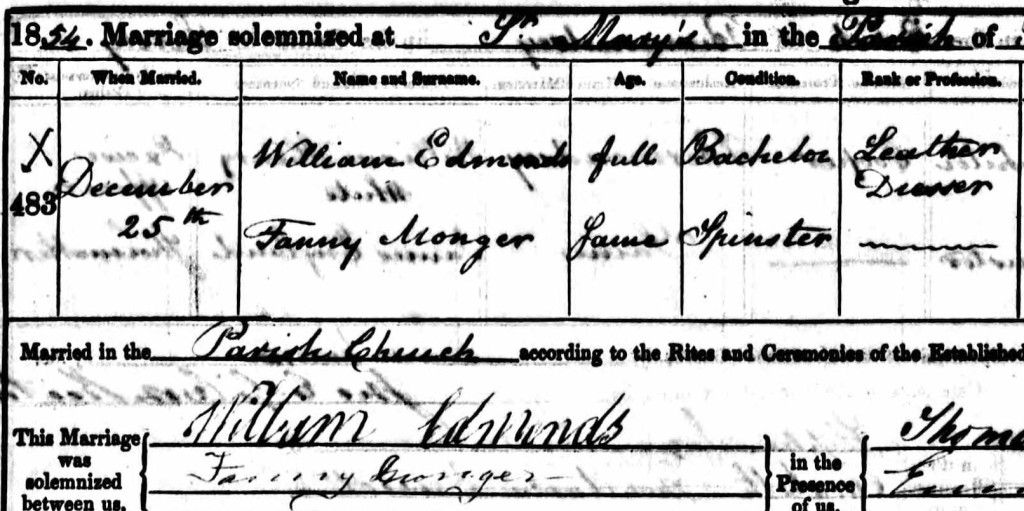 1854. Marriage solemnized at St. Mary's in the Parish of
No. When Married. Name and Surname. Age. Condition. Rank or Profession.
X
483
December
25th
William Edmonds full Bachelor Leather
Dresser
Fanny Monger Same Spinster
Married in the Parish Church according to the Rites and Ceremonies of the Established
This Marriage was solemnized between us,
William Edmunds
Fanny Monger
in the Presence of us,
Thoma